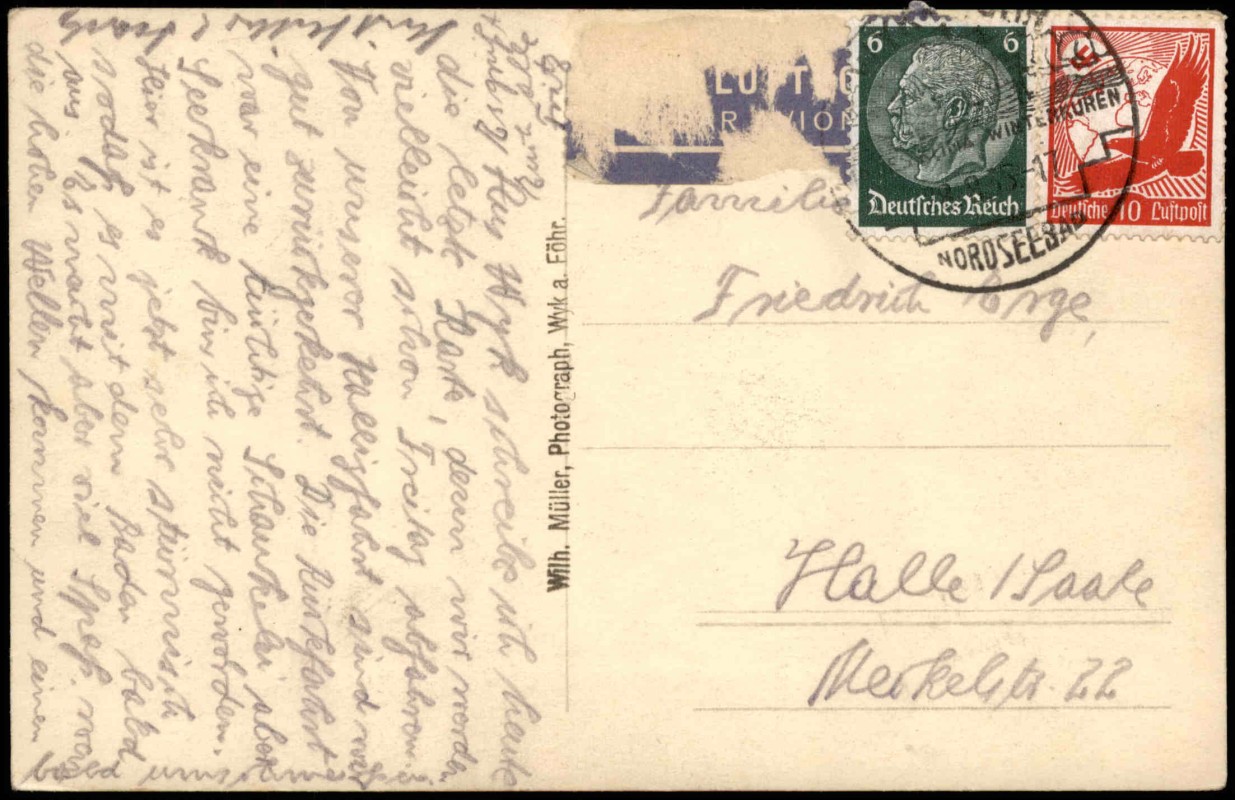 Aus Wyk schreibe ich heute
die letzte Karte, denn wir werden
vielleicht schon Freitag abfahren.
Von unserer Halligfahrt sind wir
gut zurückgekehrt. Die Rückfahrt
war eine tüchtige Schaukelei aber
Seekrank bin ich nicht geworden.
Hier ist es jetzt sehr stürmisch
sodaß es mit dem Baden bald
aus ist. Es macht aber viel Spaß, wenn
die hohen Wellen kommen und einen
bald umschmeißen
Wilh. Müller, Photograph, Wyk a. Föhr.
LUFT
R AVION
6 6
Deutsches Reich
Deutsche 10 Luftpost
WINTERKUREN
NORDSEEBAD
Familie
Friedrich Orge,
Halle / Saale
Merkelstr. 22